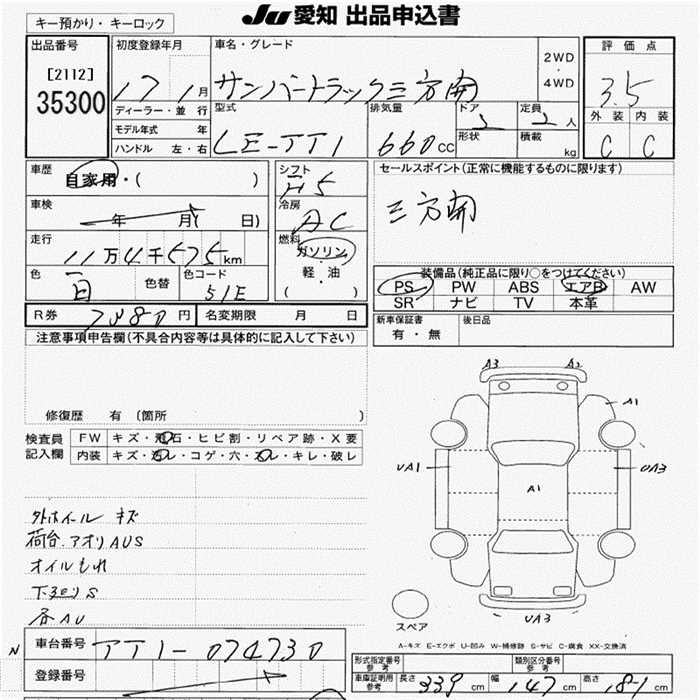 キー預かり・キーロック
JU 愛知 出品申込書
出品番号
[2112]
35300
初度登録年月
17 1月
ディーラー・並行
モデル年式 年
ハンドル 左・右
車名・グレード
サンバートラック三方開
2WD
・
4WD
型式
LE-TT1
排気量
660cc
ドア
2
形状
定員
2人
積載
kg
評価点
3.5
外装 内装
C C
車歴
自家用・( )
車検
年 月( 日)
走行
11万4千575km
色
白
色替
色コード
51E
シフト
H5
冷房
AC
燃料
ガソリン
軽・油
( )
セールスポイント(正常に機能するものに限ります)
三方開
装備品(純正品に限り○をつけてください)
PS PW ABS エアB AW
SR ナビ TV 本革
R券 7480円 名変期限 月 日
新車保証書
有・無
後日品
注意事項申告欄(不具合内容等は具体的に記入して下さい)
修復歴 有 (箇所 )
検査員
記入欄
FW キズ・飛石・ヒビ割・リペア跡・X要
内装 キズ・汚レ・コゲ・穴・スレ・キレ・破レ
外ホイール キズ
荷台.アオリAUS
オイルもれ
下廻りS
各AU
A3 A2
A1
UA1
UA3
A1
UA3
スペア
A-キズ E-エクボ U-凹み W-補修跡 S-サビ C-腐食 XX-交換済
N
車台番号 TT1-074730
登録番号
形式指定番号
参考
類別区分番号
参考
車庫証明用
参考
長さ 339cm 幅 147cm 高さ 181cm